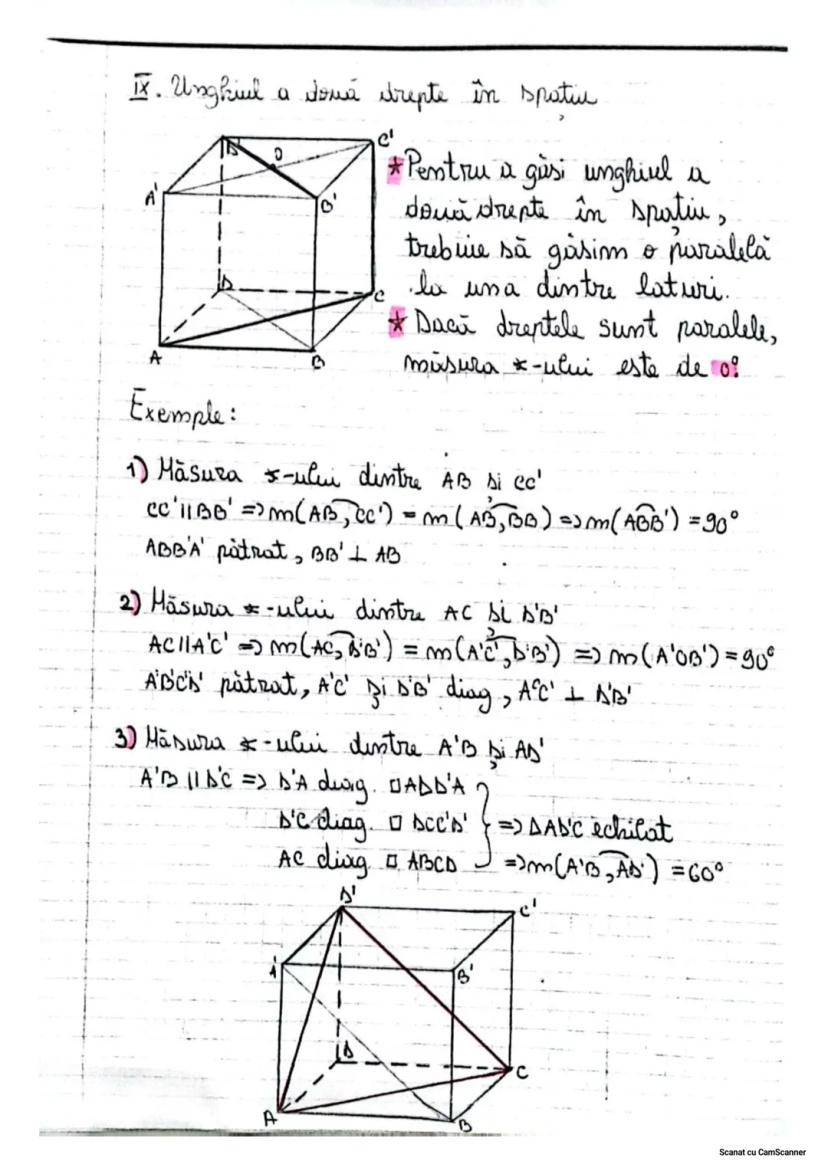 IX. Unghiul a două drepte în spațiu
D' O C'
A' B'
D C
A B
* Pentru a găsi unghiul a
două drepte în spațiu,
trebuie să găsim o paralelă
la una dintre laturi.
* Dacă dreptele sunt paralele,
măsura ∢-ului este de 0°.
Exemple:
1) Măsura ∢-ului dintre AB și CC'
CC' || BB' => m(AB, CC') = m(AB, BB) => m(ABB') = 90°
ABB'A' pătrat, BB' ⊥ AB
2) Măsura ∢-ului dintre AC și D'B'
AC || A'C' => m(AC, D'B') = m(A'C', D'B') => m(A'OB') = 90°
A'B'C'D' pătrat, A'C' și D'B' diag, A'C' ⊥ D'B'
3) Măsura ∢-ului dintre A'B și AD'
A'B || D'C => D'A diag. □ADD'A
D'C diag. □ DCC'D' } => ΔAD'C echilat
AC diag □ ABCD => m(A'B, AD') = 60°
D' C'
A' B'
D C
A B
Scanat cu CamScanner